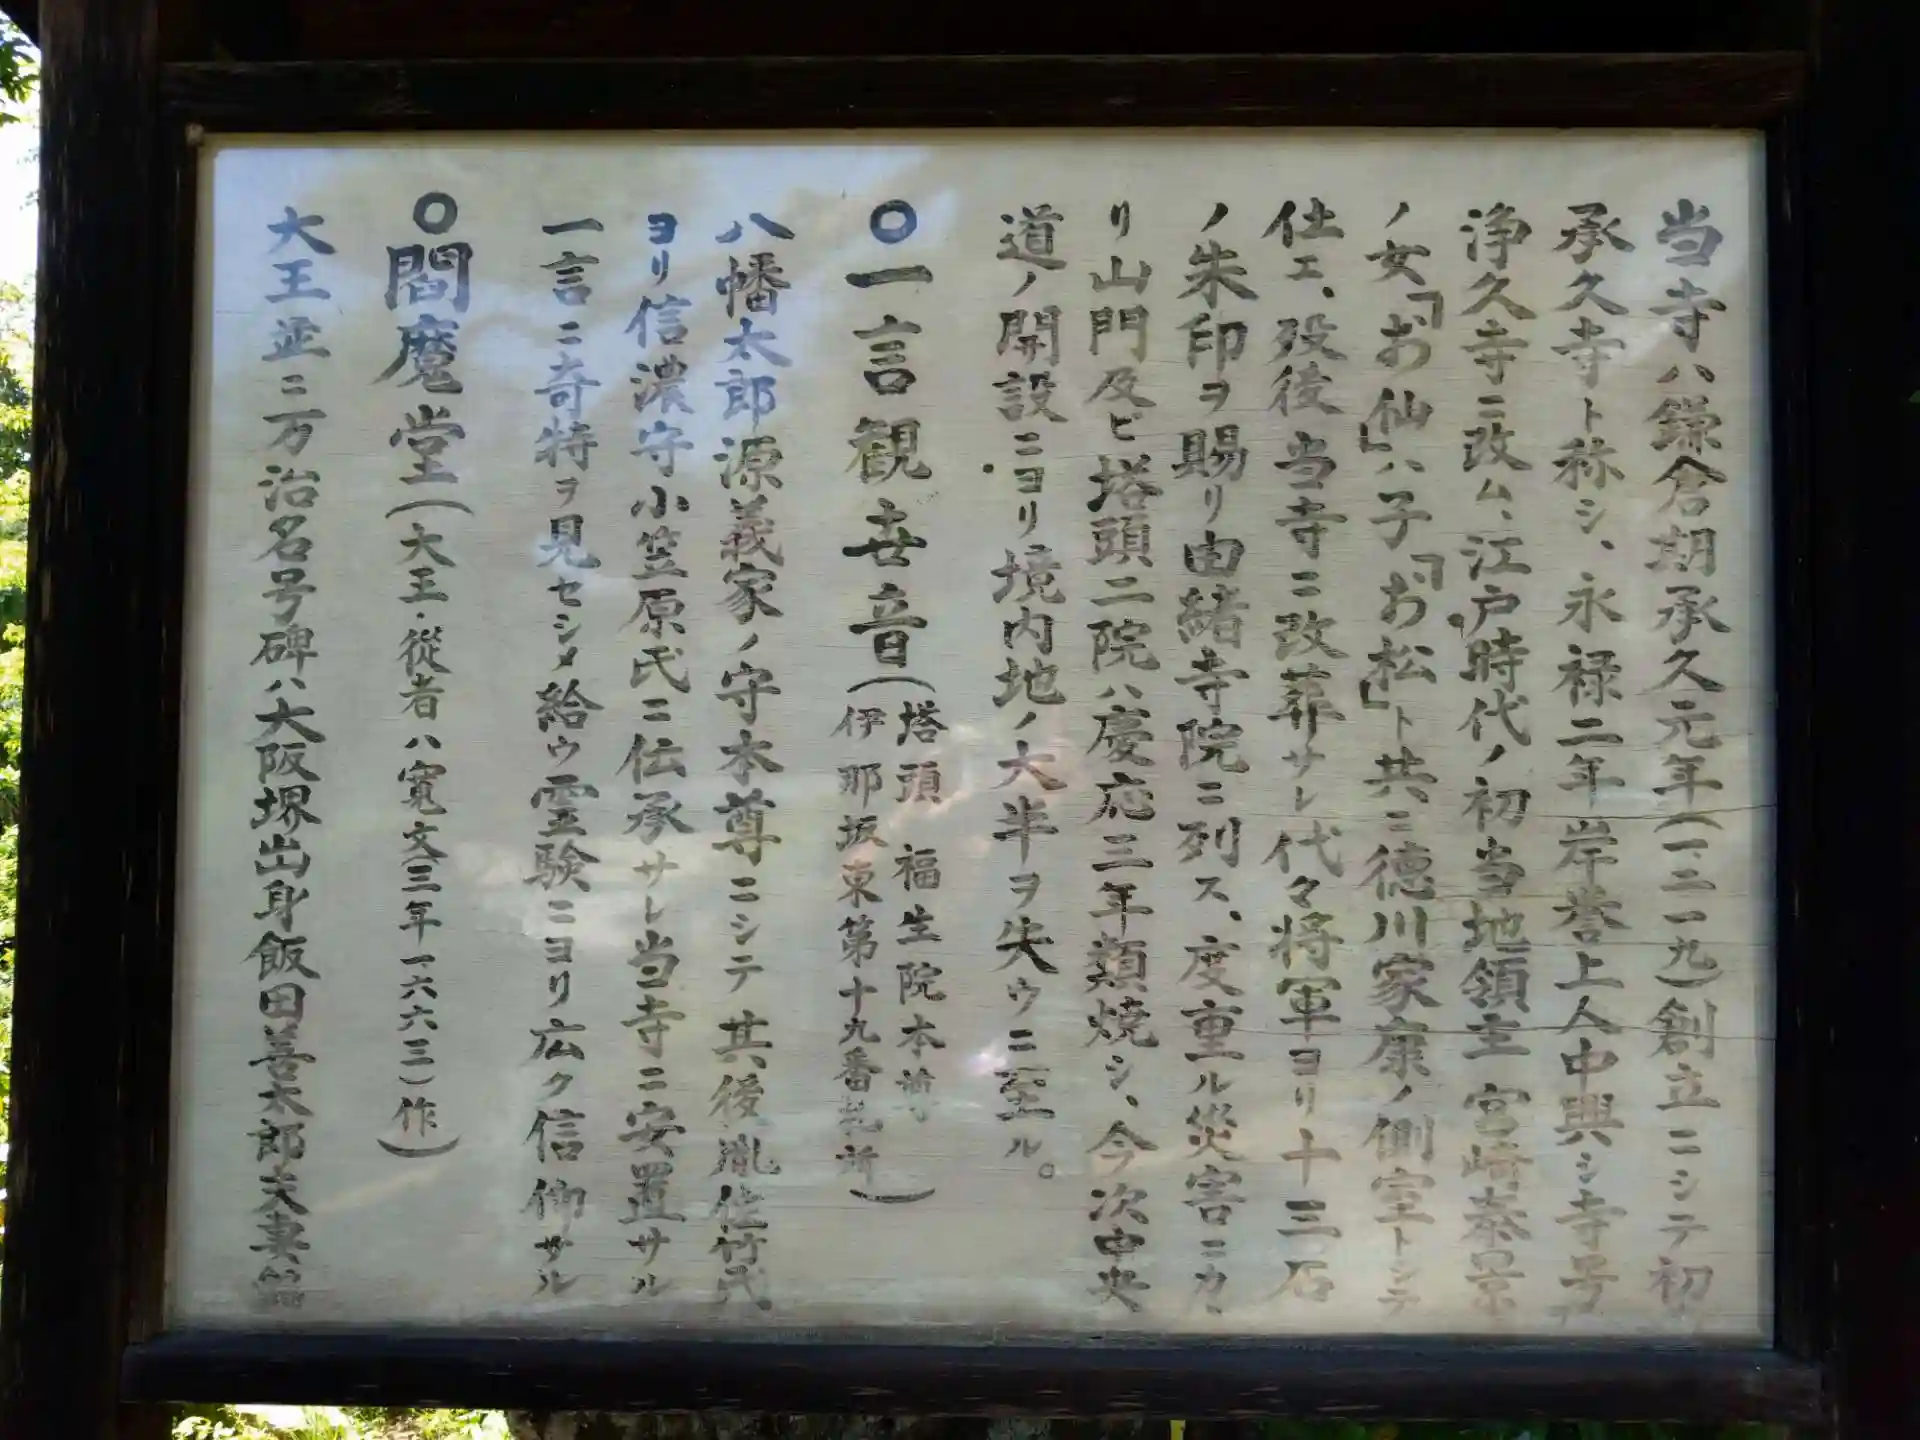 当寺ハ鎌倉期承久元年(一二一九)創立ニシテ初
承久寺ト称シ、永禄二年岸誉上人中興シ寺号
浄久寺ニ改ム、江戸時代ノ初当地領主宮崎泰景
ノ女「お仙」ハ子「お松」ト共ニ徳川家康ノ側室トシテ
仕エ、歿後当寺ニ改葬サレ代々将軍ヨリ十三石
ノ朱印ヲ賜リ由緒寺院ニ列ス、度重ル災害ニカヽ
リ山門及ビ塔頭二院ハ慶応三年類焼シ、今次中央
道ノ開設ニヨリ境内地ノ大半ヲ失ウニ至ル。
○一言観世音(塔頭 福生院本尊
伊那坂東第十九番札所)
八幡太郎源義家ノ守本尊ニシテ其後胤佐竹氏
ヨリ信濃守小笠原氏ニ伝承サレ当寺ニ安置サル
一言ニ奇特ヲ見セシメ給ウ霊験ニヨリ広ク信仰サル
○閻魔堂(大王・従者ハ寛文三年一六六三)作)
大王並ニ万治名号碑ハ大阪堺出身飯田善太郎夫妻